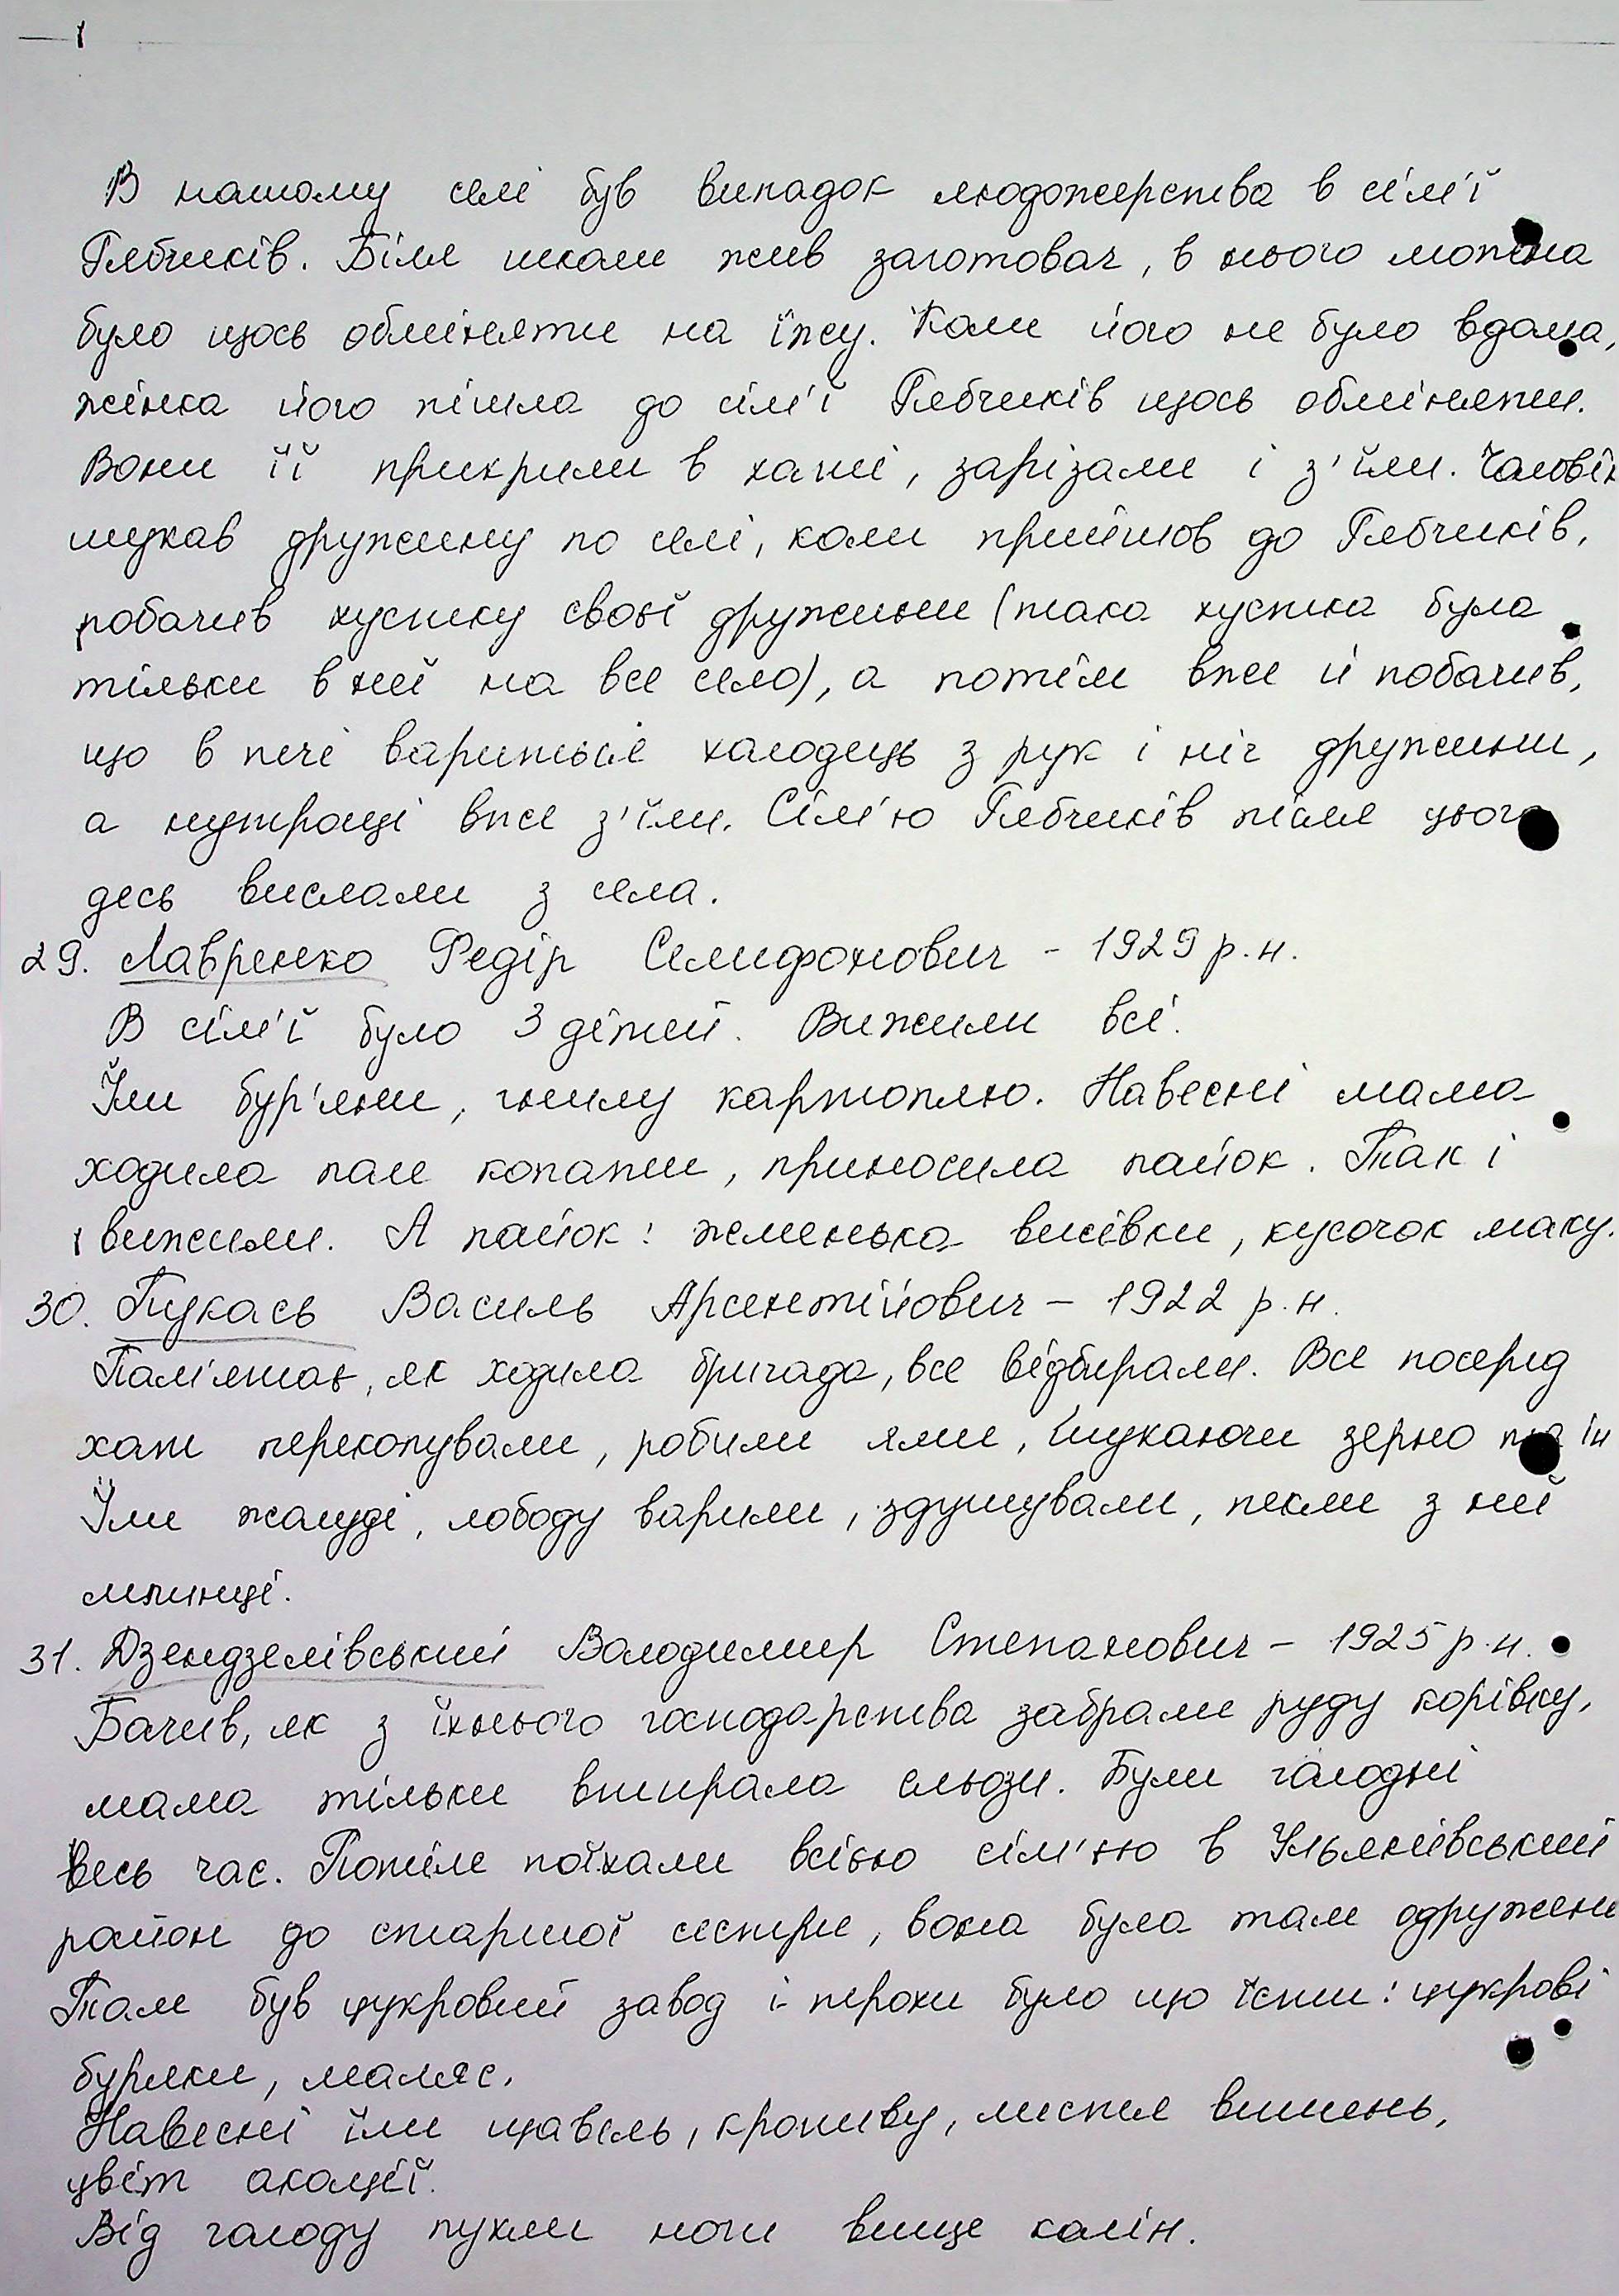 В нашому селі був випадок людожерства в сім'ї
Рябчиків. Біля школи жив заготовач, в нього можна
було щось обміняти на їжу. Коли його не було вдома,
жінка його пішла до сім'ї Рябчиків щось обміняти.
Вони її прикрили в хаті, зарізали і з'їли. Чоловік
шукав дружину по селі, коли прийшов до Рябчиків,
побачив хустку своєї дружини (така хустка була
тільки в неї на все село), а потім вже й побачив,
що в печі вариться холодець з рук і ніг дружини,
а нутрощі вже з'їли. Сім'ю Рябчиків після цього
десь вислали з села.
29. Лавренко Федір Селифонович - 1929 р.н.
В сім'ї було 3 дітей. Вижили всі.
Їли бур'яни, гнилу картоплю. Навесні мама
ходила поле копати, приносила пайок. Так і
вижили. А пайок: жменька висівки, кусочок маку.
30. Пукась Василь Арсентійович - 1922 р.н.
Пам'ятав, як ходила бригада, все відбирали. Все посеред
хати перекопували, робили ями, шукаючи зерно та ін
Їли жолуді, лободу варили, здушували, пекли з неї
млинці.
31. Дзендзелівський Володимир Степанович - 1925 р.н.
Бачив, як з їхнього господарства забрали руду корівку,
мама тільки втирала сльози. Були голодні
весь час. Потім поїхали всією сім'єю в Ульянівський
район до старшої сестри, вона була там одружена
Там був цукровий завод і трохи було що їсти: цукрові
буряки, маляс.
Навесні їли щавель, кропиву, листя вишень,
цвіт акації.
Від голоду пухли ноги вище колін.